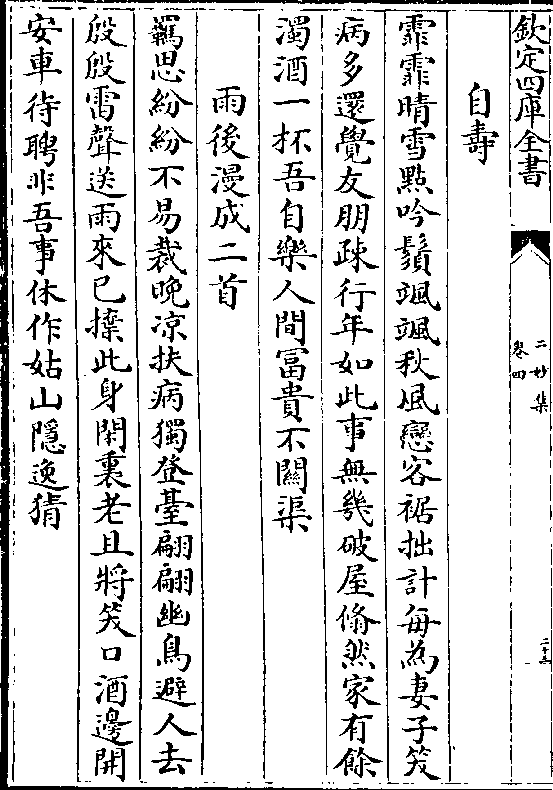 欽定四庫全書
二妙集
卷四
自壽
霏霏晴雪點吟鬚颯颯秋風戀客裾拙計每為妻子笑
病多還覺友朋疎行年如此事無幾破屋翛然家有餘
濁酒一杯吾自樂人間冨貴不關渠
雨後漫成二首
羈思紛紛不易裁晚凉扶病獨登臺翩翩幽鳥避人去
殷殷雷聲送雨來已擬此身閑裏老且將笑口酒邊開
安車待聘非吾事休作姑山隱逸猜